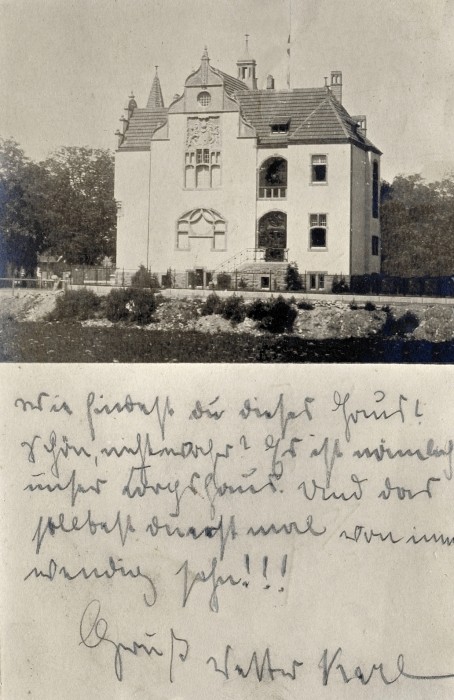 Wie findest du dieses Haus!
Schön, nicht wahr? Es ist nämlich
unser Corpshaus. Und das
solltest du erst mal von inn
wendig sehn!!!
Gruß Vetter Karl